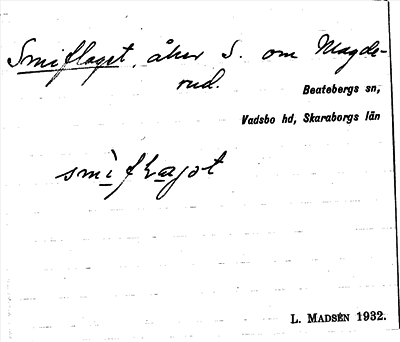 Smiflaget, åker S. om Magde-
rud.
Beatebergs sn,
Vadsbo hd, Skaraborgs län
L. MADSÉN 1932.